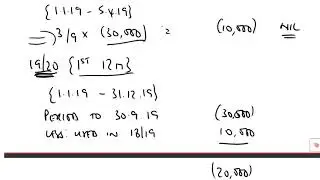 {1.1.19 - 5.4.19}
=> 3/9 x (30,000) = (10,000) NIL
19/20 {1ST 12m}
{1.1.19 - 31.12.19}
PERIOD TO 30.9.19 (30,000)
LESS: USED IN 18/19 10,000
(20,000)